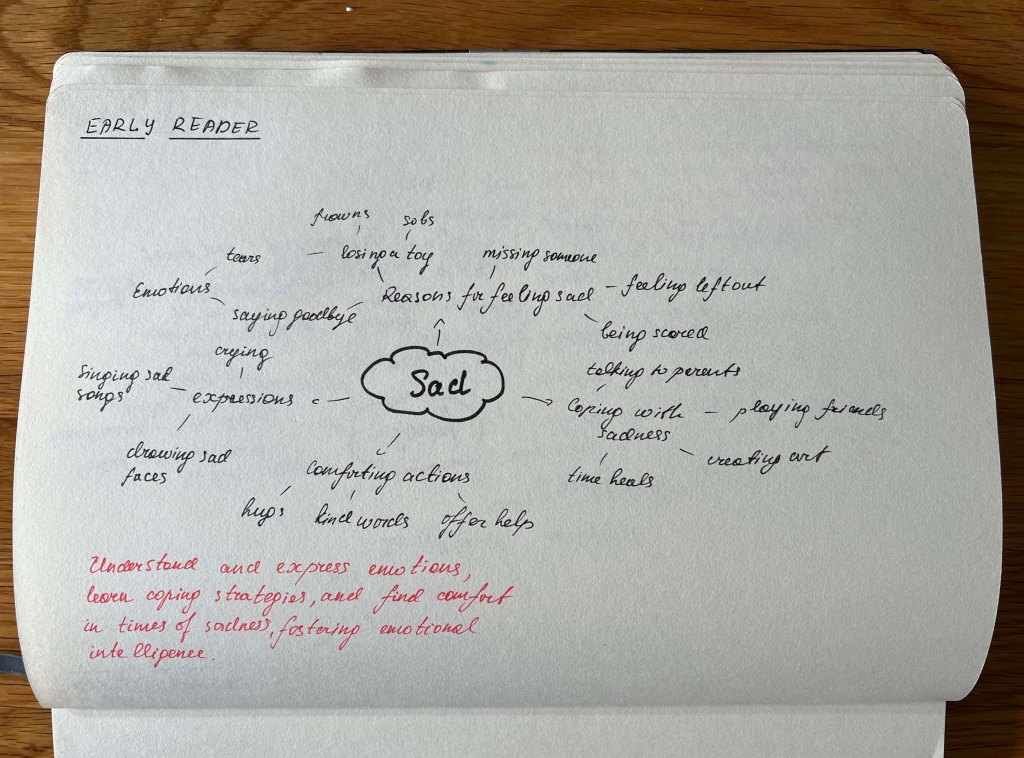 EARLY READER
frowns sobs
tears losing a toy missing someone
Emotions Reasons for feeling sad feeling left out
saying goodbye being scared
crying talking to parents
Singing sad
songs expressions Sad Coping with
sadness playing friends
drawing sad
faces comforting actions time heals creating art
hugs kind words offer help
Understand and express emotions,
learn coping strategies, and find comfort
in times of sadness, fostering emotional
intelligence.